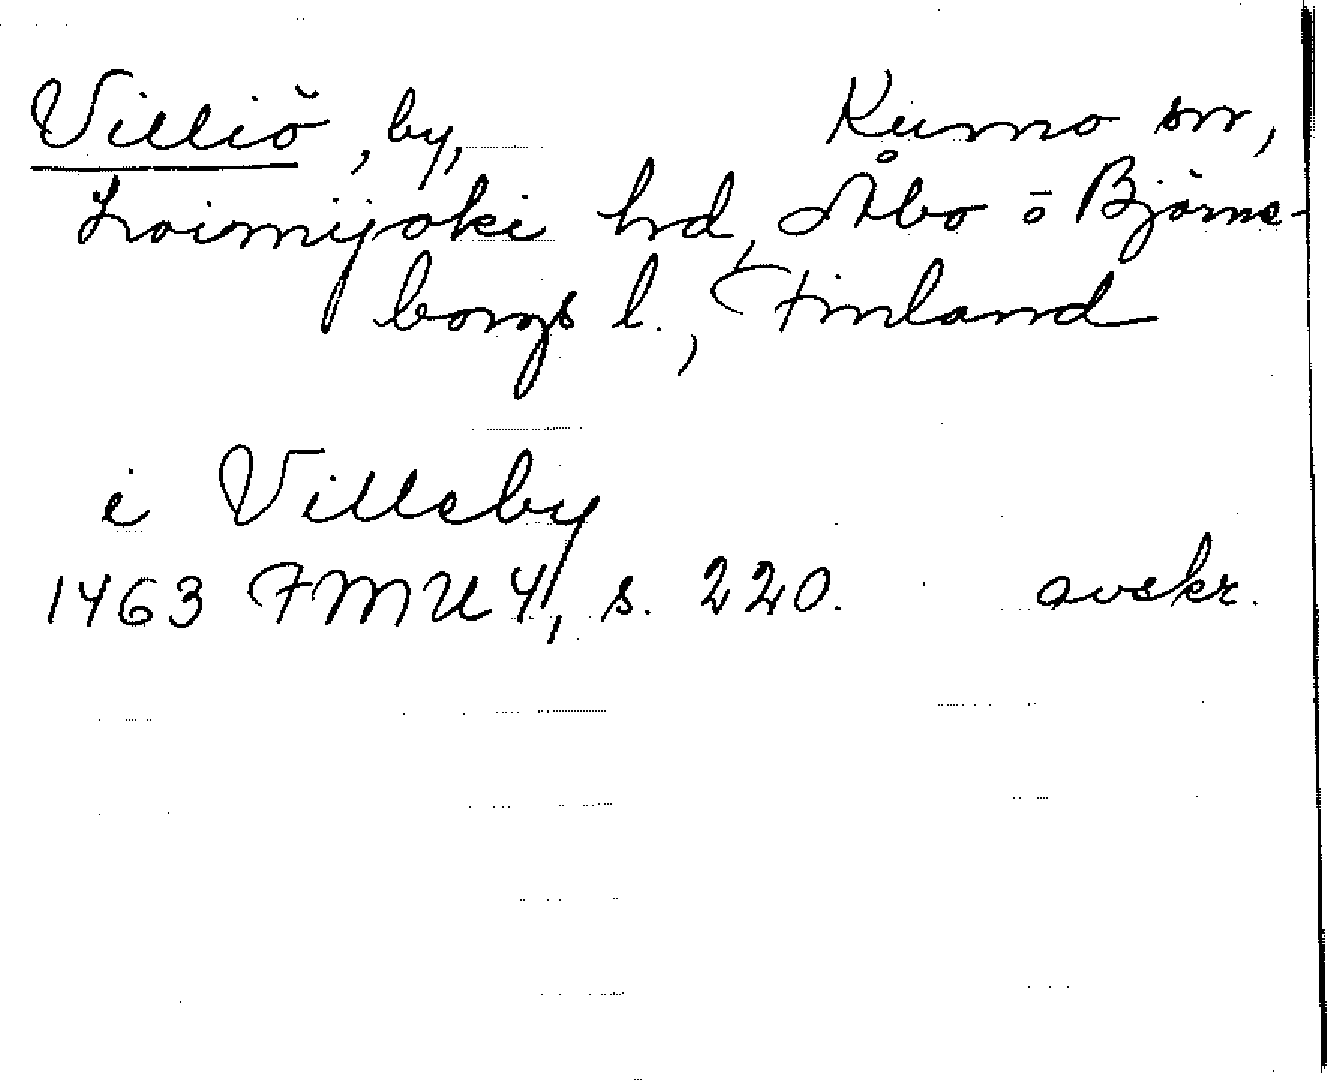 Villiö, by, Kumo sn,
Loimijoki hd, Åbo o Björne-
borgs l., Finland
i Villeby
1463 FMU 4, s. 220. avskr.